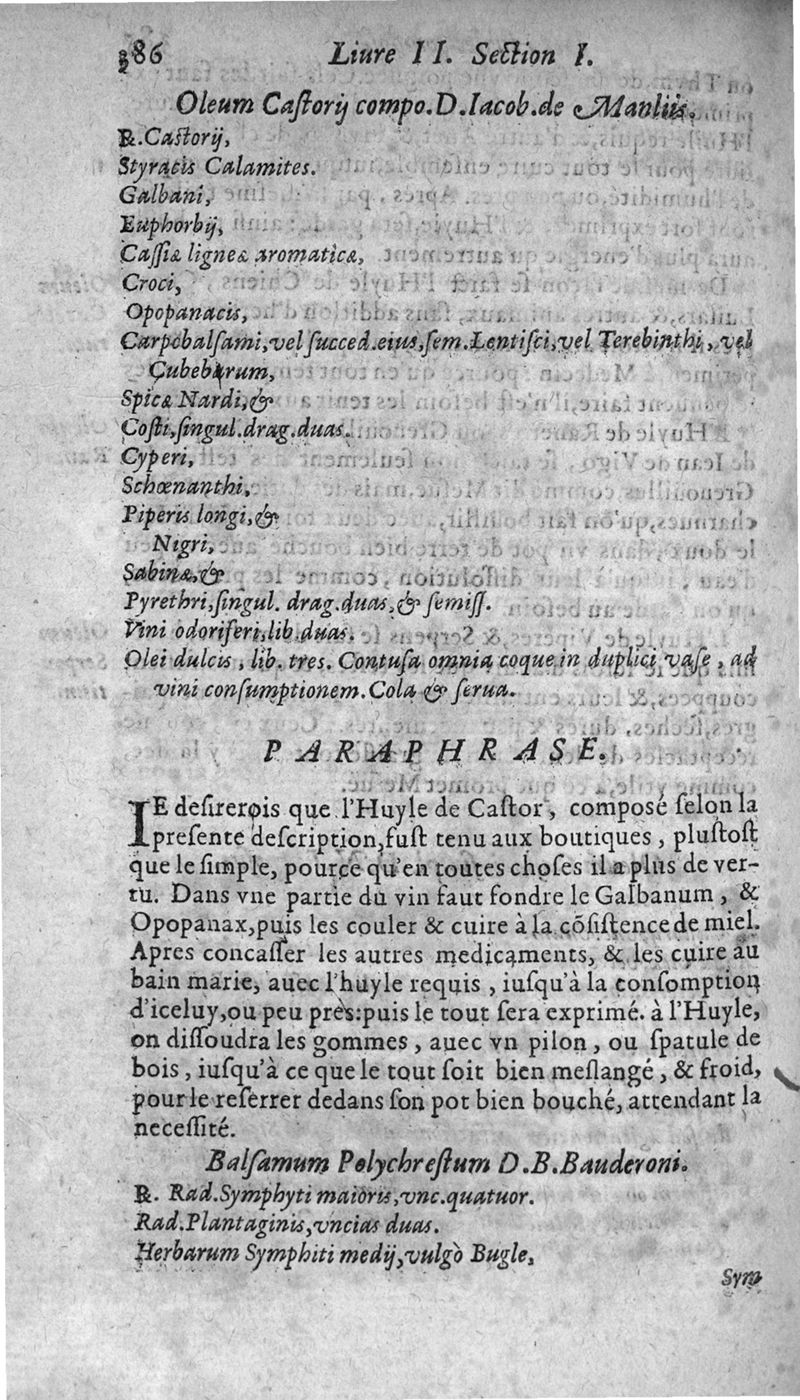 386 Liure II. Section I.
Oleum Castorij compo. D. Iacob. de Manliis.
℞. Castorij,
Styracis Calamites.
Galbani,
Euphorbij,
Cassiæ ligneæ aromaticæ,
Croci,
Opopanacis,
Carpobalsami, vel succed. eius, sem. Lentisci, vel Terebinthi, vel
Cubebarum,
Spicæ Nardi, &
Costi, singul. drag. duas.
Cyperi,
Schœnanthi,
Piperis longi, &
Nigri,
Sabinæ, &
Pyrethri, singul. drag. duas, & semiss.
Vini odoriferi, lib. duas.
Olei dulcis, lib. tres. Contusa omnia coque in duplici vase, ad
vini consumptionem. Cola & serua.
PARAPHRASE.
IE desirerois que l'Huyle de Castor, composé selon la
presente description, fust tenu aux boutiques, plustost
que le simple, pource qu'en toutes choses il a plus de ver-
tu. Dans vne partie du vin faut fondre le Galbanum, &
Opopanax, puis les couler & cuire à la cõsistence de miel.
Apres concasser les autres medicaments, & les cuire au
bain marie, auec l'huyle requis, iusqu'à la consomption
d'iceluy, ou peu près: puis le tout sera exprimé. à l'Huyle,
on dissoudra les gommes, auec vn pilon, ou spatule de
bois, iusqu'à ce que le tout soit bien meslangé, & froid,
pour le reserrer dedans son pot bien bouché, attendant la
necessité.
Balsamum Polychrestum D. B. Bauderoni.
℞. Rad. Symphyti maioris, vnc. quatuor.
Rad. Plantaginis, vncias duas.
Herbarum Symphiti medij, vulgò Bugle,
Sym